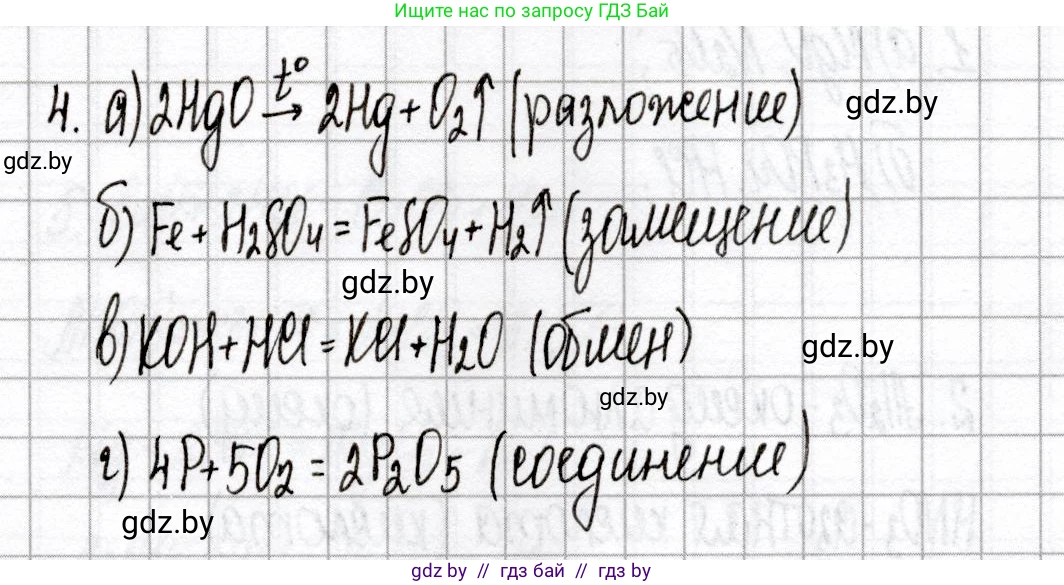 Ищите нас по запросу ГДЗ Бай
4. а) 2HgO t°→ 2Hg + O₂↑ (разложение) gdz.by
gdz.by
б) Fe + H₂SO₄ = FeSO₄ + H₂↑ (замещение)
gdz.by
в) KOH + HCl = KCl + H₂O (обмен) gdz.by
gdz.by
г) 4P + 5O₂ = 2P₂O₅ (соединение)
gdz.by
gdz.by // гдз бай // gdz by